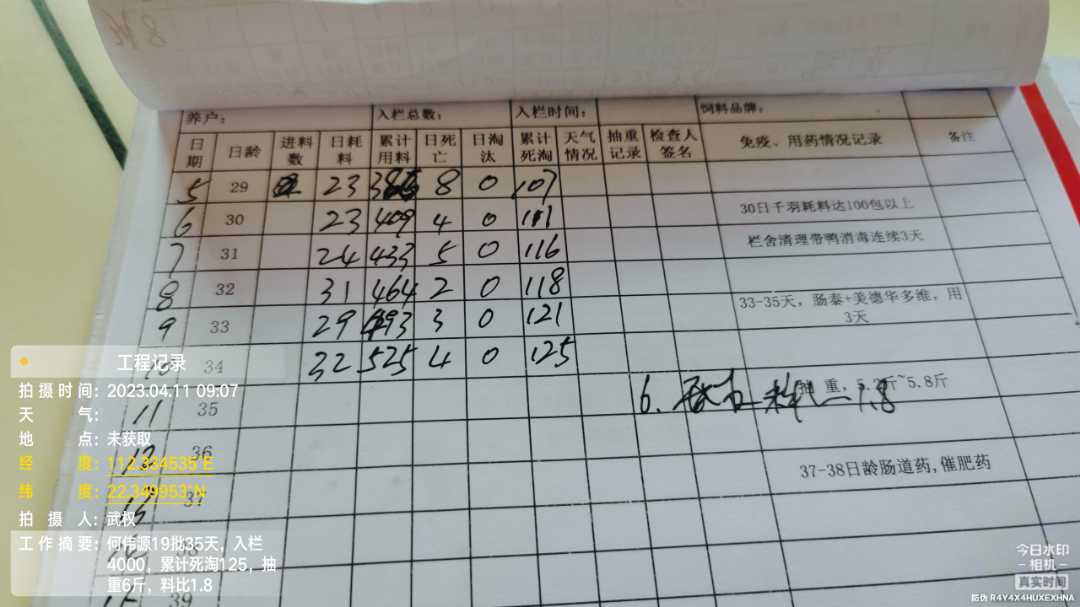 养户: 入栏总数: 入栏时间: 饲料品牌:
日期 日龄 进料数 日耗料 累计用料 日死亡 日淘汰 累计死淘 天气情况 抽重记录 检查人签名 免疫、用药情况记录 备注
5 29 23 8 0 107
6 30 23 409 4 0 111 30日千羽耗料达100包以上
7 31 24 433 5 0 116 栏舍清理带鸭消毒连续3天
8 32 31 464 2 0 118
9 33 29 493 3 0 121 33-35天，肠泰+美德华多维，用3天
34 32 525 4 0 125
11 35 抽重，5.2斤~5.8斤
6. 料 1.8
12 36 37-38日龄肠道药,催肥药
13 37
38
15 39
工程记录
拍摄时间: 2023.04.11 09:07
天气:
地点: 未获取
经度: 112.334535°E
纬度: 22.349953°N
拍摄人: 武权
工作摘要: 何伟源19批35天，入栏
4000，累计死淘125，抽
重6斤，料比1.8
今日水印
-相机-
真实时间
防伪 R4Y4X4HUXEXHNA